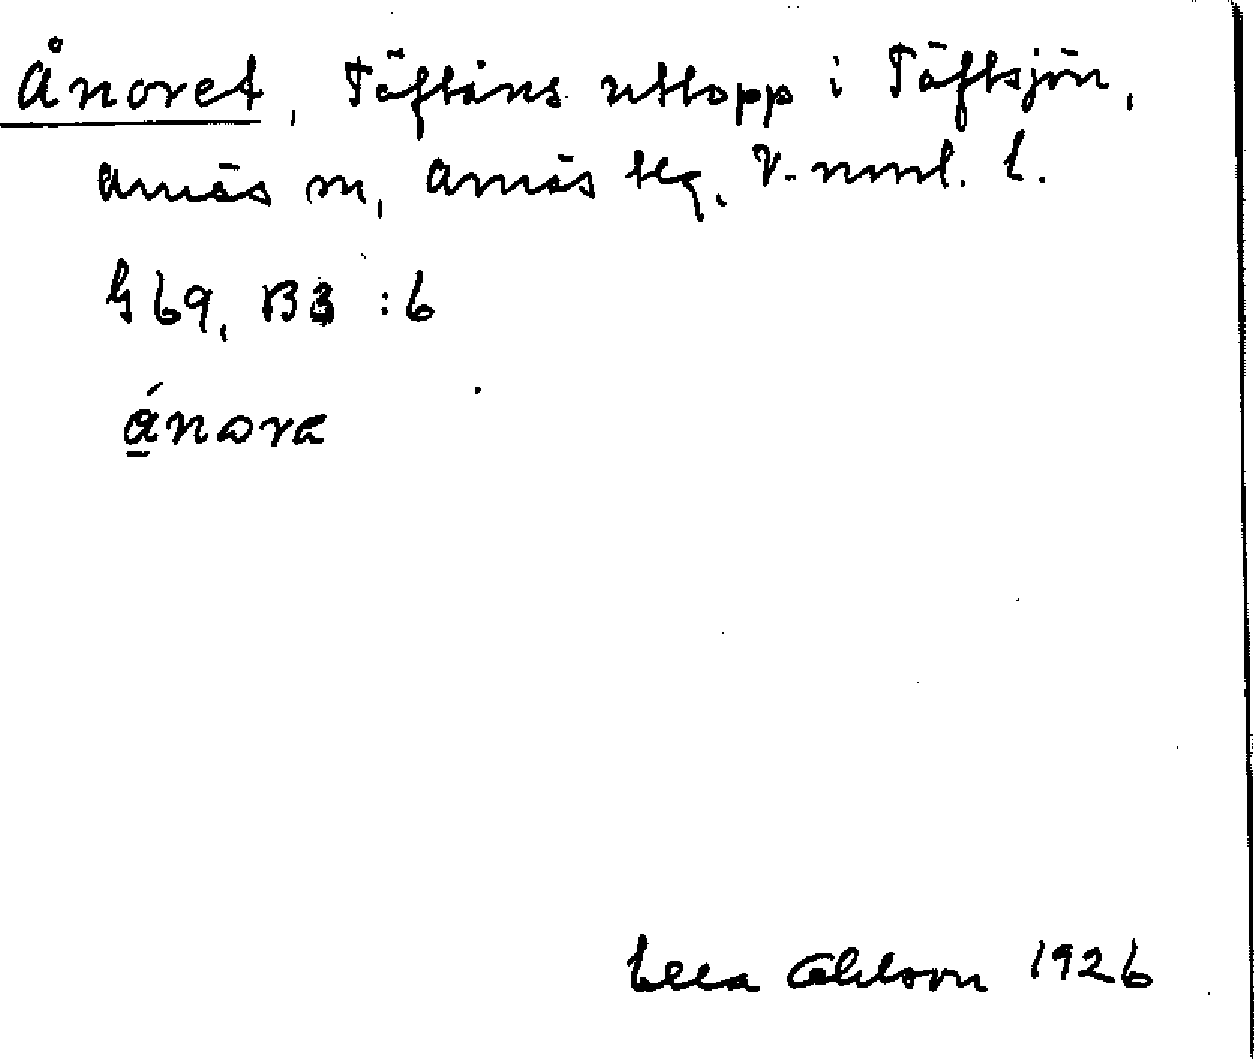 Ånoret, Täftåns utlopp i Täftsjön,
Arnäs sn, Arnäs tlg, V.-norrl. l.
4 69, B3 : 6
ånorą
Ohlson 1926